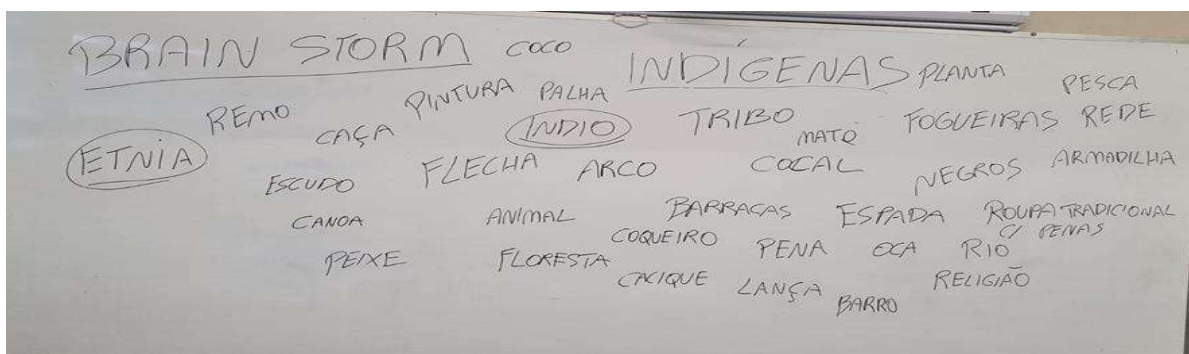 BRAIN STORM COCO INDÍGENAS PLANTA PESCA
REMO PINTURA PALHA
ETNIA CAÇA ÍNDIO TRIBO MATO FOGUEIRAS REDE
ESCUDO FLECHA ARCO COCAL NEGROS ARMADILHA
CANOA ANIMAL BARRACAS ESPADA ROUPA TRADICIONAL
C/ PENAS
PEIXE FLORESTA COQUEIRO PENA OCA RIO
CACIQUE LANÇA BARRO RELIGIÃO